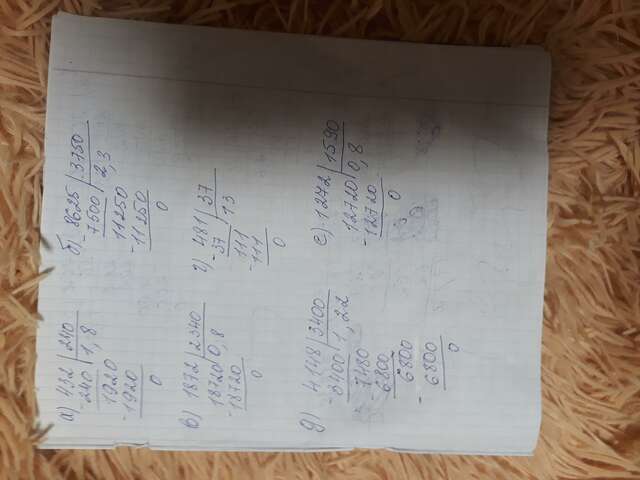 а) 432 | 240
-240 | 1,8
1920
-1920
0
б) 8625 | 3750
-7500 | 2,3
11250
-11250
0
в) 1872 | 2340
18720 | 0,8
-18720
0
г) 481 | 37
-37 | 13
111
-111
0
д) 4148 | 3400
-3400 | 1,22
7480
-6800
6800
-6800
0
е) 1272 | 1590
12720 | 0,8
-12720
0